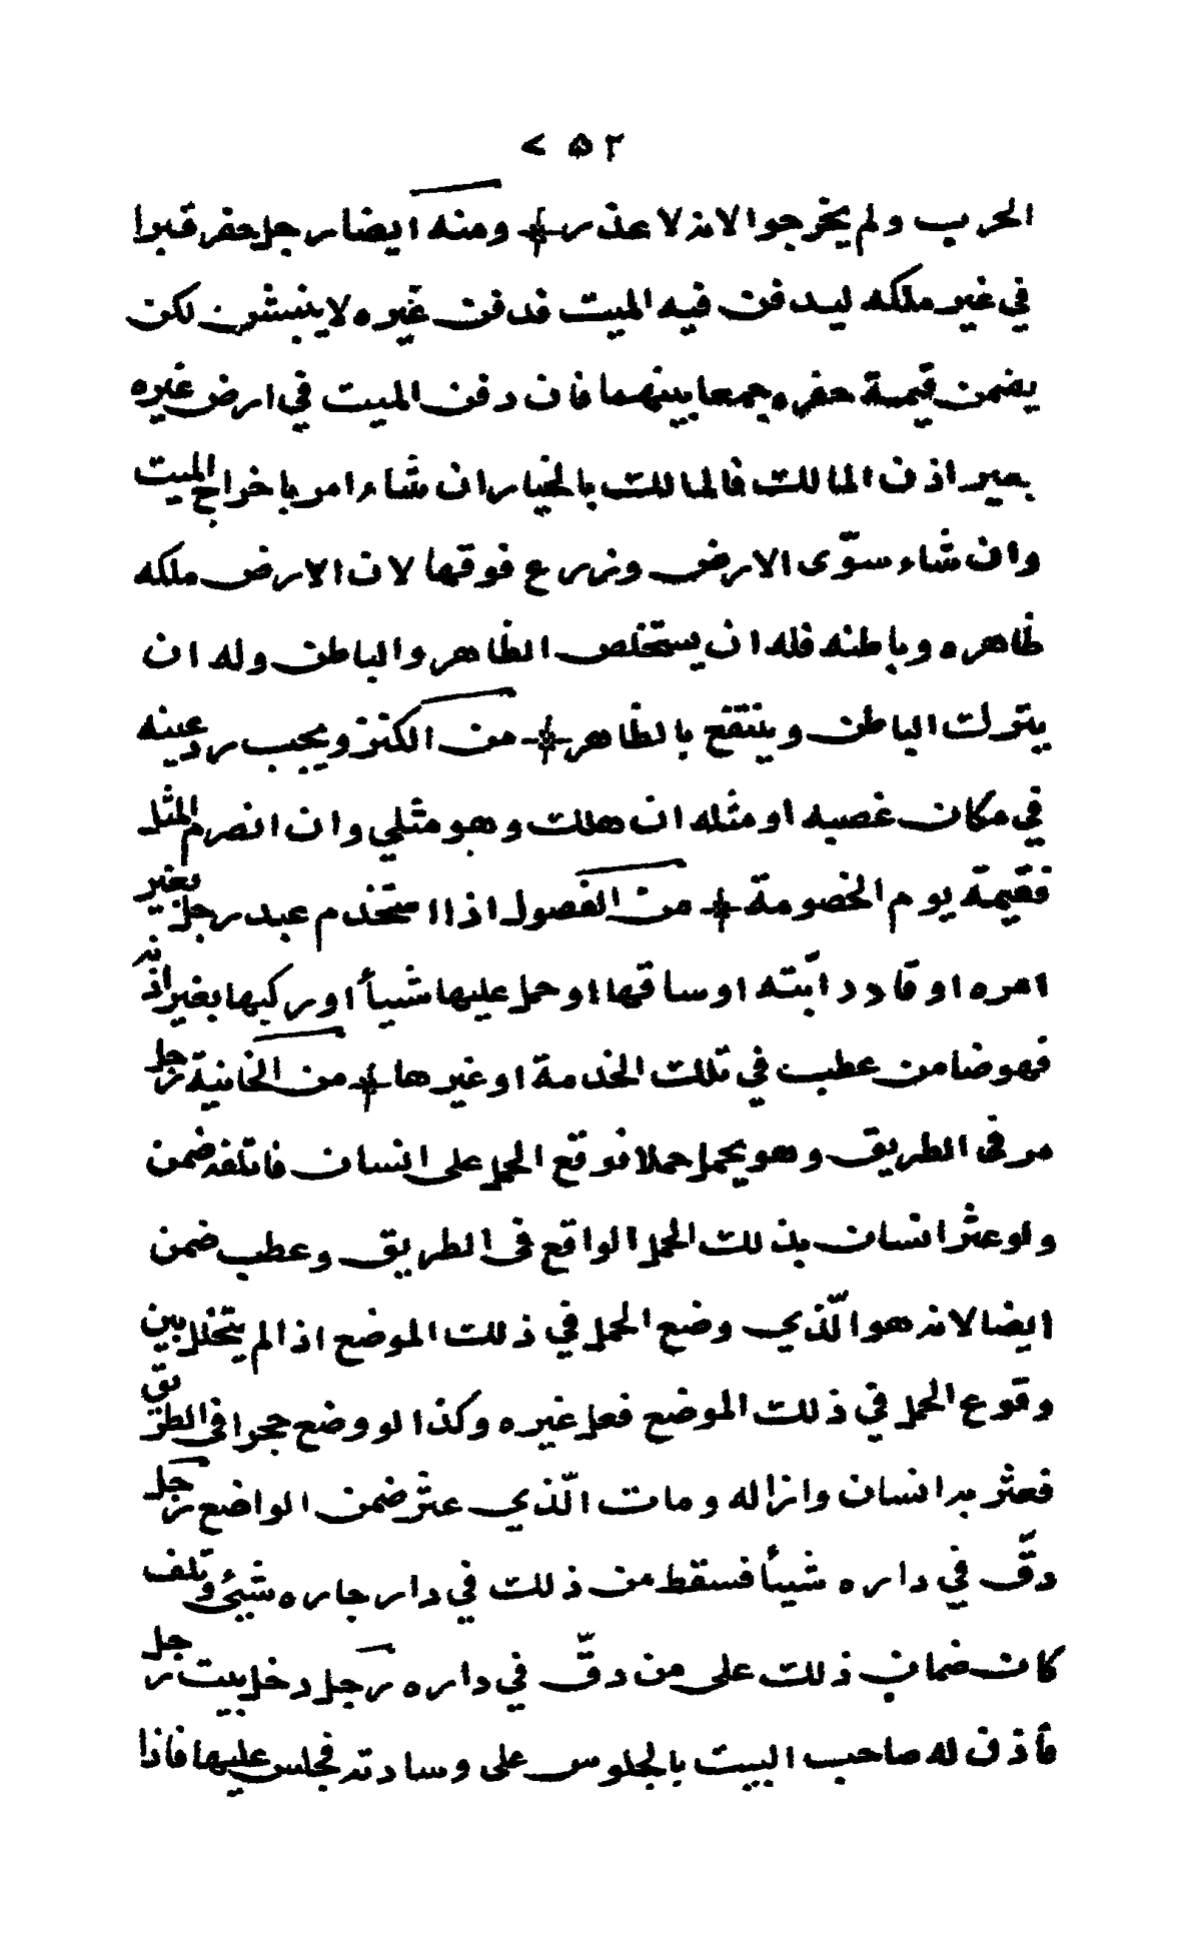 ٢٥٧
الحرب ولم يخرجوا لانه لا عذر ❊ ومنه ايضا رجل حفر قبرا
في غير ملكه ليدفن فيه الميت فدفن غيره لا ينبش لكن
يضمن قيمة حفره جمعا بينهما فان دفن الميت في ارض غيره
بغير اذن المالك فالمالك بالخيار ان شاء امر باخراج الميت
وان شاء سوّى الارض وزرع فوقها لان الارض ملكه
ظاهره وباطنه فله ان يستخلص الظاهر والباطن وله ان
يترك الباطن وينتفع بالظاهر ❊ من الكنز ويجب رد عينه
في مكان غصبه او مثله ان هلك وهو مثلي وان انصرم المثل
فقيمة يوم الخصومة ❊ من الفصول اذا استخدم عبد رجل بغير
امره او قاد دابّته او ساقها او حمل عليها شيأ او ركبها بغير اذنه
فهو ضامن عطب في تلك الخدمة او غيرها ❊ من الخانية رجل
مر فى الطريق وهو يحمل حملا فوقع الحمل على انسان فاتلفه ضمن
ولو عثر انسان بذلك الحمل الواقع فى الطريق وعطب ضمن
ايضا لانه هو الّذي وضع الحمل في ذلك الموضع اذا لم يتخلل بين
وقوع الحمل في ذلك الموضع فعل غيره وكذا لو وضع حجرا فى الطريق
فعثر به انسان وازاله ومات الّذي عثر ضمن الواضع رجل
دقّ في داره شيأ فسقط من ذلك في دار جاره شيئ وتلف
كان ضمان ذلك على من دقّ في داره رجل دخل بيت رجل
فأذن له صاحب البيت بالجلوس على وسادته فجلس عليها فاذا